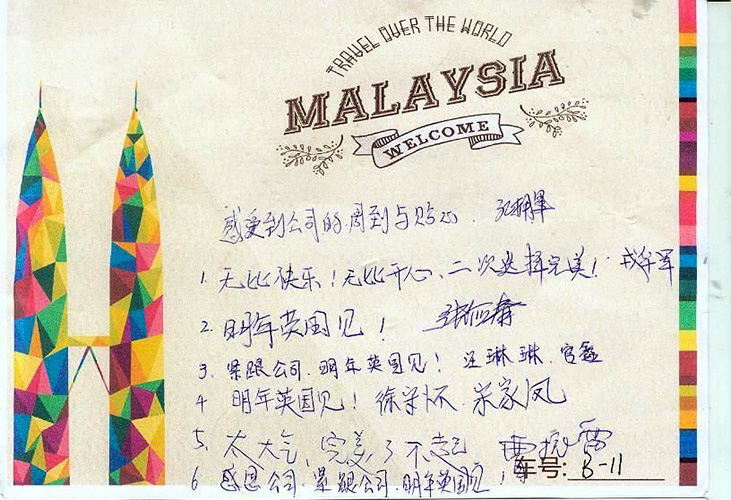 TRAVEL OVER THE WORLD
MALAYSIA
WELCOME
感受到公司的周到与贴心.
1. 无比快乐！无比开心、二次选择完美！
2. 明年英国见！
3. 紧跟公司.明年英国见！汪琳琳.官鑫
4 明年英国见！徐学怀.宋家凤
5. 太大气,完美,了不起
6 感恩公司.紧跟公司.明年英国见！
车号: B-11